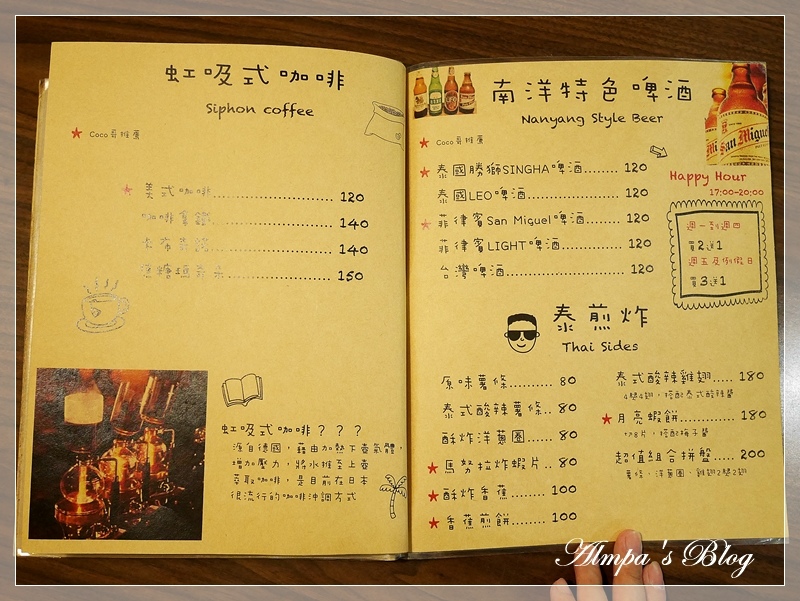 虹吸式咖啡
Siphon coffee
Coco哥推薦
美式咖啡 120
咖啡拿鐵 140
卡布奇諾 140
焦糖瑪奇朵 150
虹吸式咖啡？？？
源自德國，藉由加熱下壺氣體，
增加壓力，將水推至上壺
萃取咖啡，是目前在日本
很流行的咖啡沖調方式
南洋特色啤酒
Nanyang Style Beer
Coco哥推薦
泰國勝獅SINGHA啤酒........ 120
泰國LEO啤酒 120
菲律賓San Miguel啤酒 120
菲律賓LIGHT啤酒 120
台灣啤酒 120
San Miguel
Happy Hour
17:00-20:00
週一到週四
買2送1
週五及例假日
買3送1
泰煎炸
Thai Sides
原味薯條 80
泰式酸辣薯條.. 80
酥炸洋蔥圈 80
馬努拉炸蝦片.. 80
酥炸香蕉 100
香蕉煎餅 100
泰式酸辣雞翅..... 180
4腿4翅，搭配泰式酸辣醬
月亮蝦餅 180
切8片，搭配梅子醬
超值組合拼盤 200
薯條，洋蔥圈，雞翅2腿2翅
Almpa's Blog